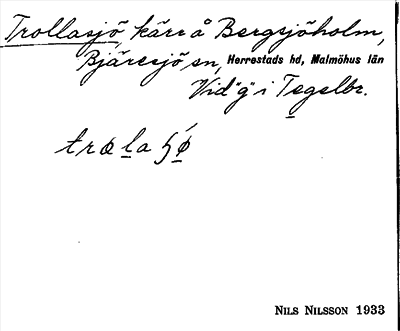 Trollasjö, kärr å Bergsjöholm,
Bjäresjö sn, Herrestads hd, Malmöhus län
Vid "g" i Tegelbr.
træla ʃø
NILS NILSSON 1933